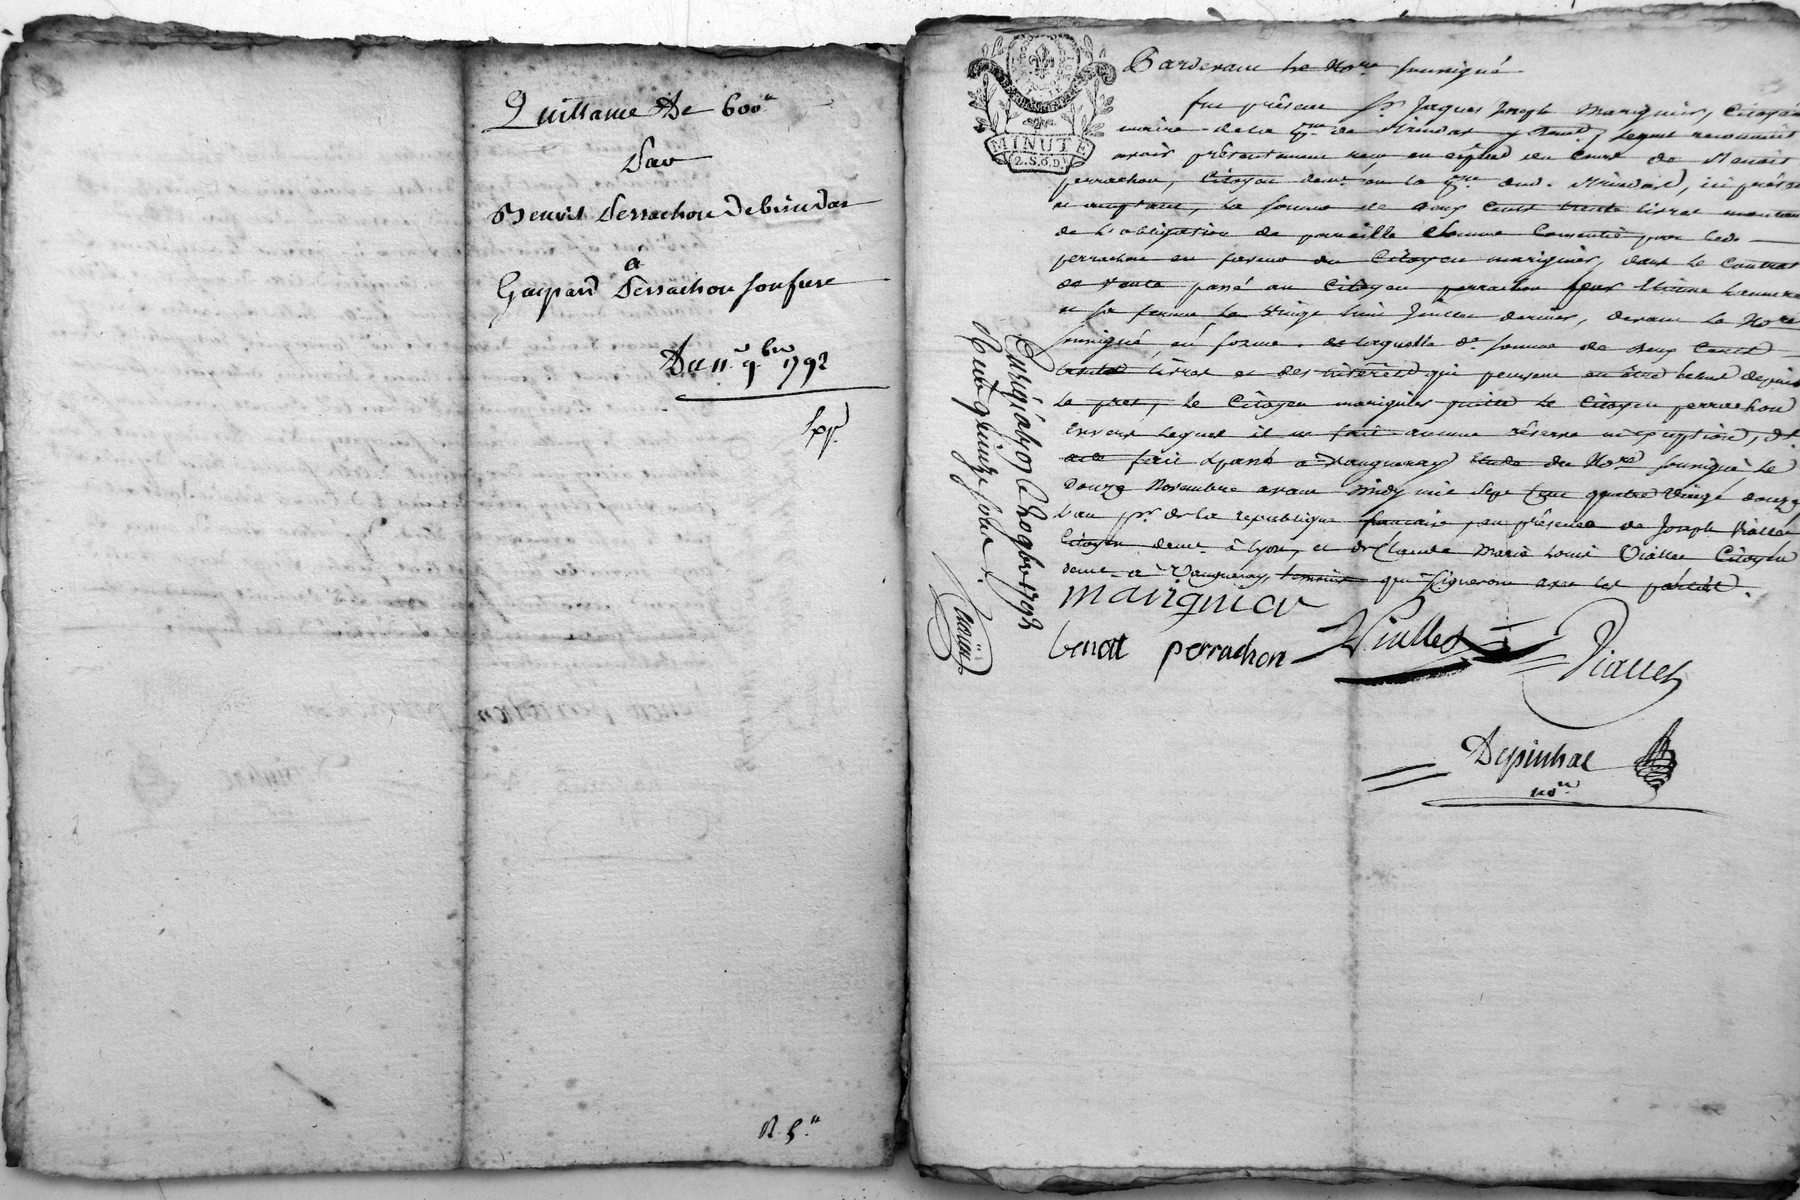 Quittance De 600ᵗᵗ
Par
Benoit Perrachon De brindas
à
Gaspard Perrachon son frere
Du 11 9bre 1792
Exp.
R. 5.ᵗᵗ
MINUTE
(2.S.6.D.)
Pardevant le Nore soussigné
fut présent Sr. Jaques Joseph Marignier, Citoyen
maire de la de Brindas y demt, lequel reconnait
avoir présentement reçu en espèces du cours de Benoit
perrachon, Citoyen demt. en la de Brindas, ici présent
et acceptant, la somme de deux cents trente livres montant
de l'obligation de pareille somme consentie par led.
perrachon en faveur du Citoyen marignier, dans le Contrat
de vente passé au Citoyen perrachon par
et sa femme le vingt huit Juillet dernier, devant le Nore
soussigné en forme. de laquelle de. somme de deux cents
trente livres et des intérêts qui peuvent en être échus depuis
le prêt, le Citoyen marignier quitte le Citoyen perrachon
envers lequel il ne fait aucune réserve ni exception, dt.
acte fait & passé à Vaugneray étude du Nore soussigné le
Douze Novembre avant midy mil sept cent quatre vingt douze
l'an pr. de la republique francaise, en présence de Joseph Viallet
Citoyen demt. à Lyon, et de Claude Marie Louis Viallet Citoyen
demt. à Vaugneray, témoins qui signeront avec les parties.
marignier
benoit perrachon Viallet
Viallet
Depinhac
nore
Enregistré à le 1792
Reçu quinze sols.